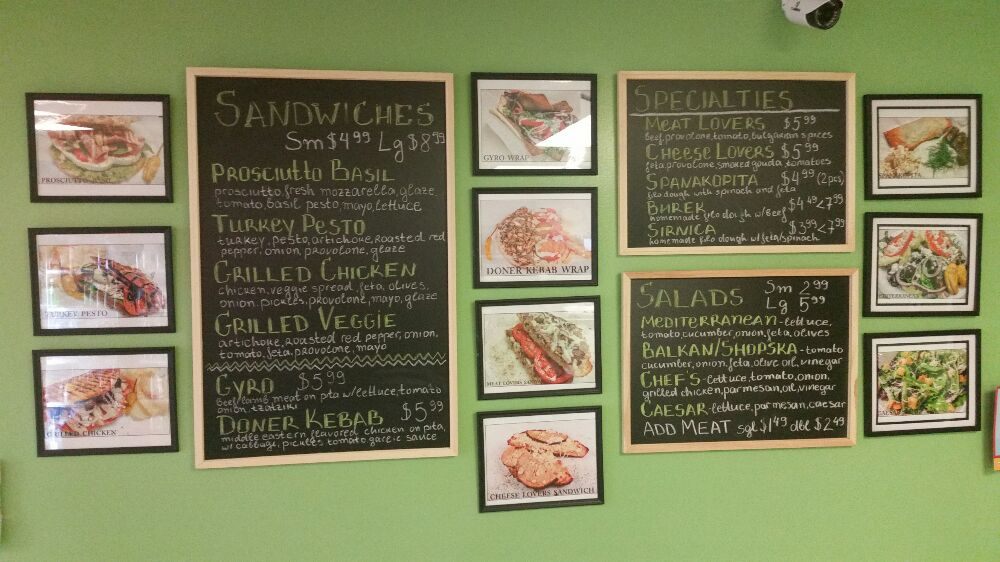 PROSCIUTTO BASIL
TURKEY PESTO
GRILLED CHICKEN
SANDWICHES
Sm $4.99 Lg $8.99
PROSCIUTTO BASIL
prosciutto, fresh mozzarella, glaze
tomato, basil pesto, mayo, lettuce
TURKEY PESTO
turkey, pesto, artichoke, Roasted red
pepper, onion, provolone, glaze
GRILLED CHICKEN
chicken, veggie spread, feta, olives,
onion, pickles, provolone, mayo, glaze
GRILLED VEGGIE
artichoke, Roasted red pepper, onion,
tomato, feta, provolone, mayo
GYRO $5.99
Beef/lamb meat on pita w/lettuce, tomato
onion, tzatziki
DONER KEBAB $5.99
middle eastern flavored chicken on pita,
w/cabbage, pickles, tomato garlic sauce
GYRO WRAP
DONER KEBAB WRAP
MEAT LOVERS SANDWICH
CHEESE LOVERS SANDWICH
SPECIALTIES
MEAT LOVERS $5.99
beef, provolone, tomato, bulgarian spices
CHEESE LOVERS $5.99
feta, provolone, smoked gouda, tomatoes
SPANAKOPITA $4.99 (2pcs)
filo dough with spinach and feta
BUREK $4.49<7.99
homemade filo dough w/Beef
SIRNICA $3.99<7.99
homemade filo dough w/feta/spinach
SALADS Sm 2.99
Lg 5.99
MEDITERRANEAN - lettuce,
tomato, cucumber, onion, feta, olives
BALKAN/SHOPSKA - tomato
cucumber, onion, feta, olive oil, vinegar
CHEF'S - lettuce, tomato, onion,
grilled chicken, parmesan, oil, vinegar
CAESAR - lettuce, parmesan, caesar
ADD MEAT sgl $1.49 dbl $2.49
SPANAKOPITA
MEDITERRANEAN
CAESAR